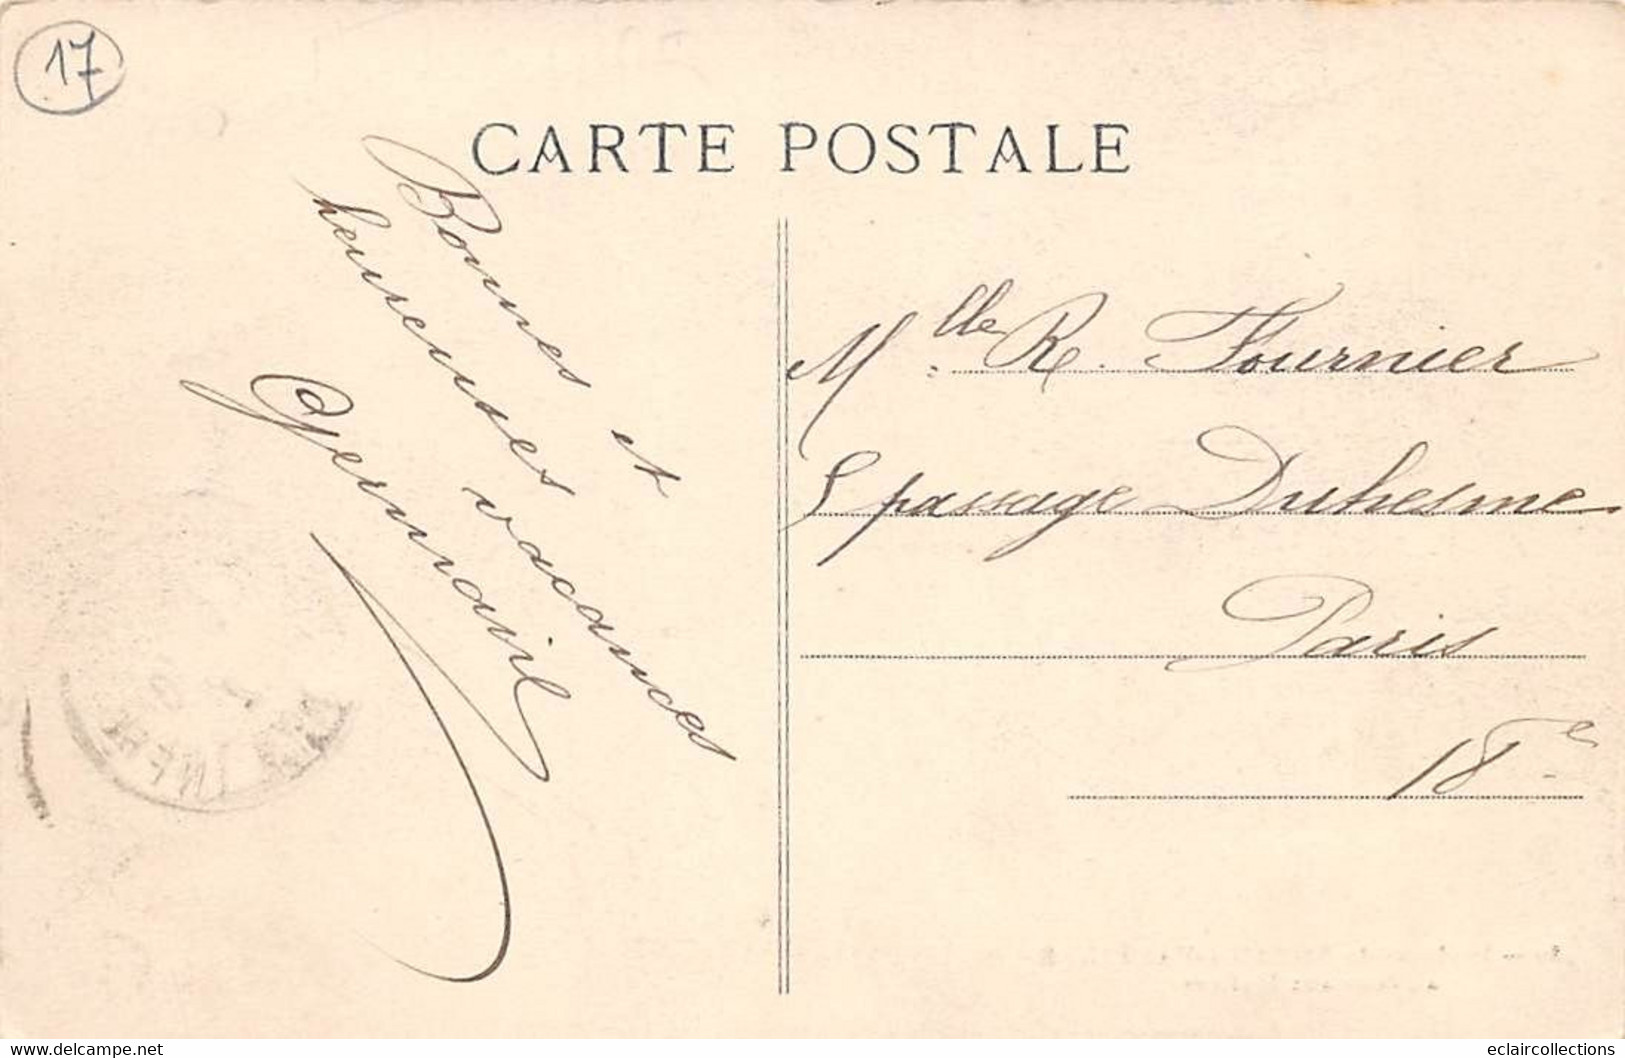 17
CARTE POSTALE
Bonnes et
heureuses vacances
Mlle R. Fournier
passage Duhesme
Paris
18e
www.delcampe.net
eclaircollections